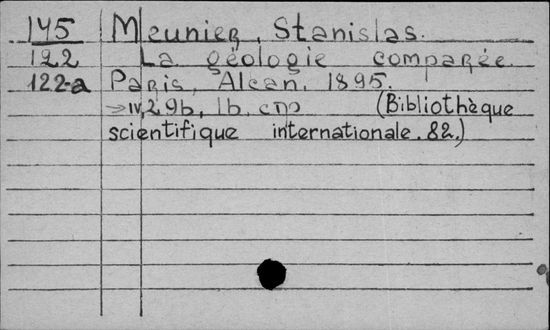 145 Meunier, Stanislas.
122 La géologie comparée.
122-a Paris, Alcan, 1895.
IV, 296, 16. cm (Bibliothèque
scientifique internationale. 82.)